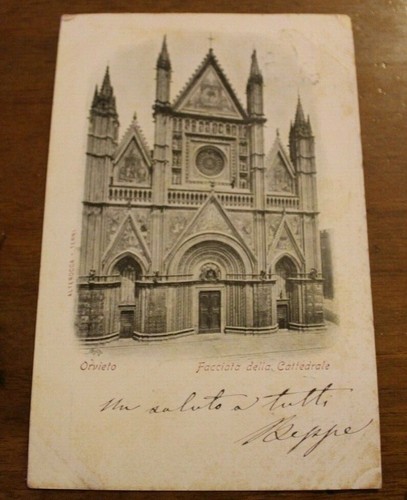 ALTEROCCA - TERNI
Orvieto
Facciata della Cattedrale
Un saluto a tutti
Beppe